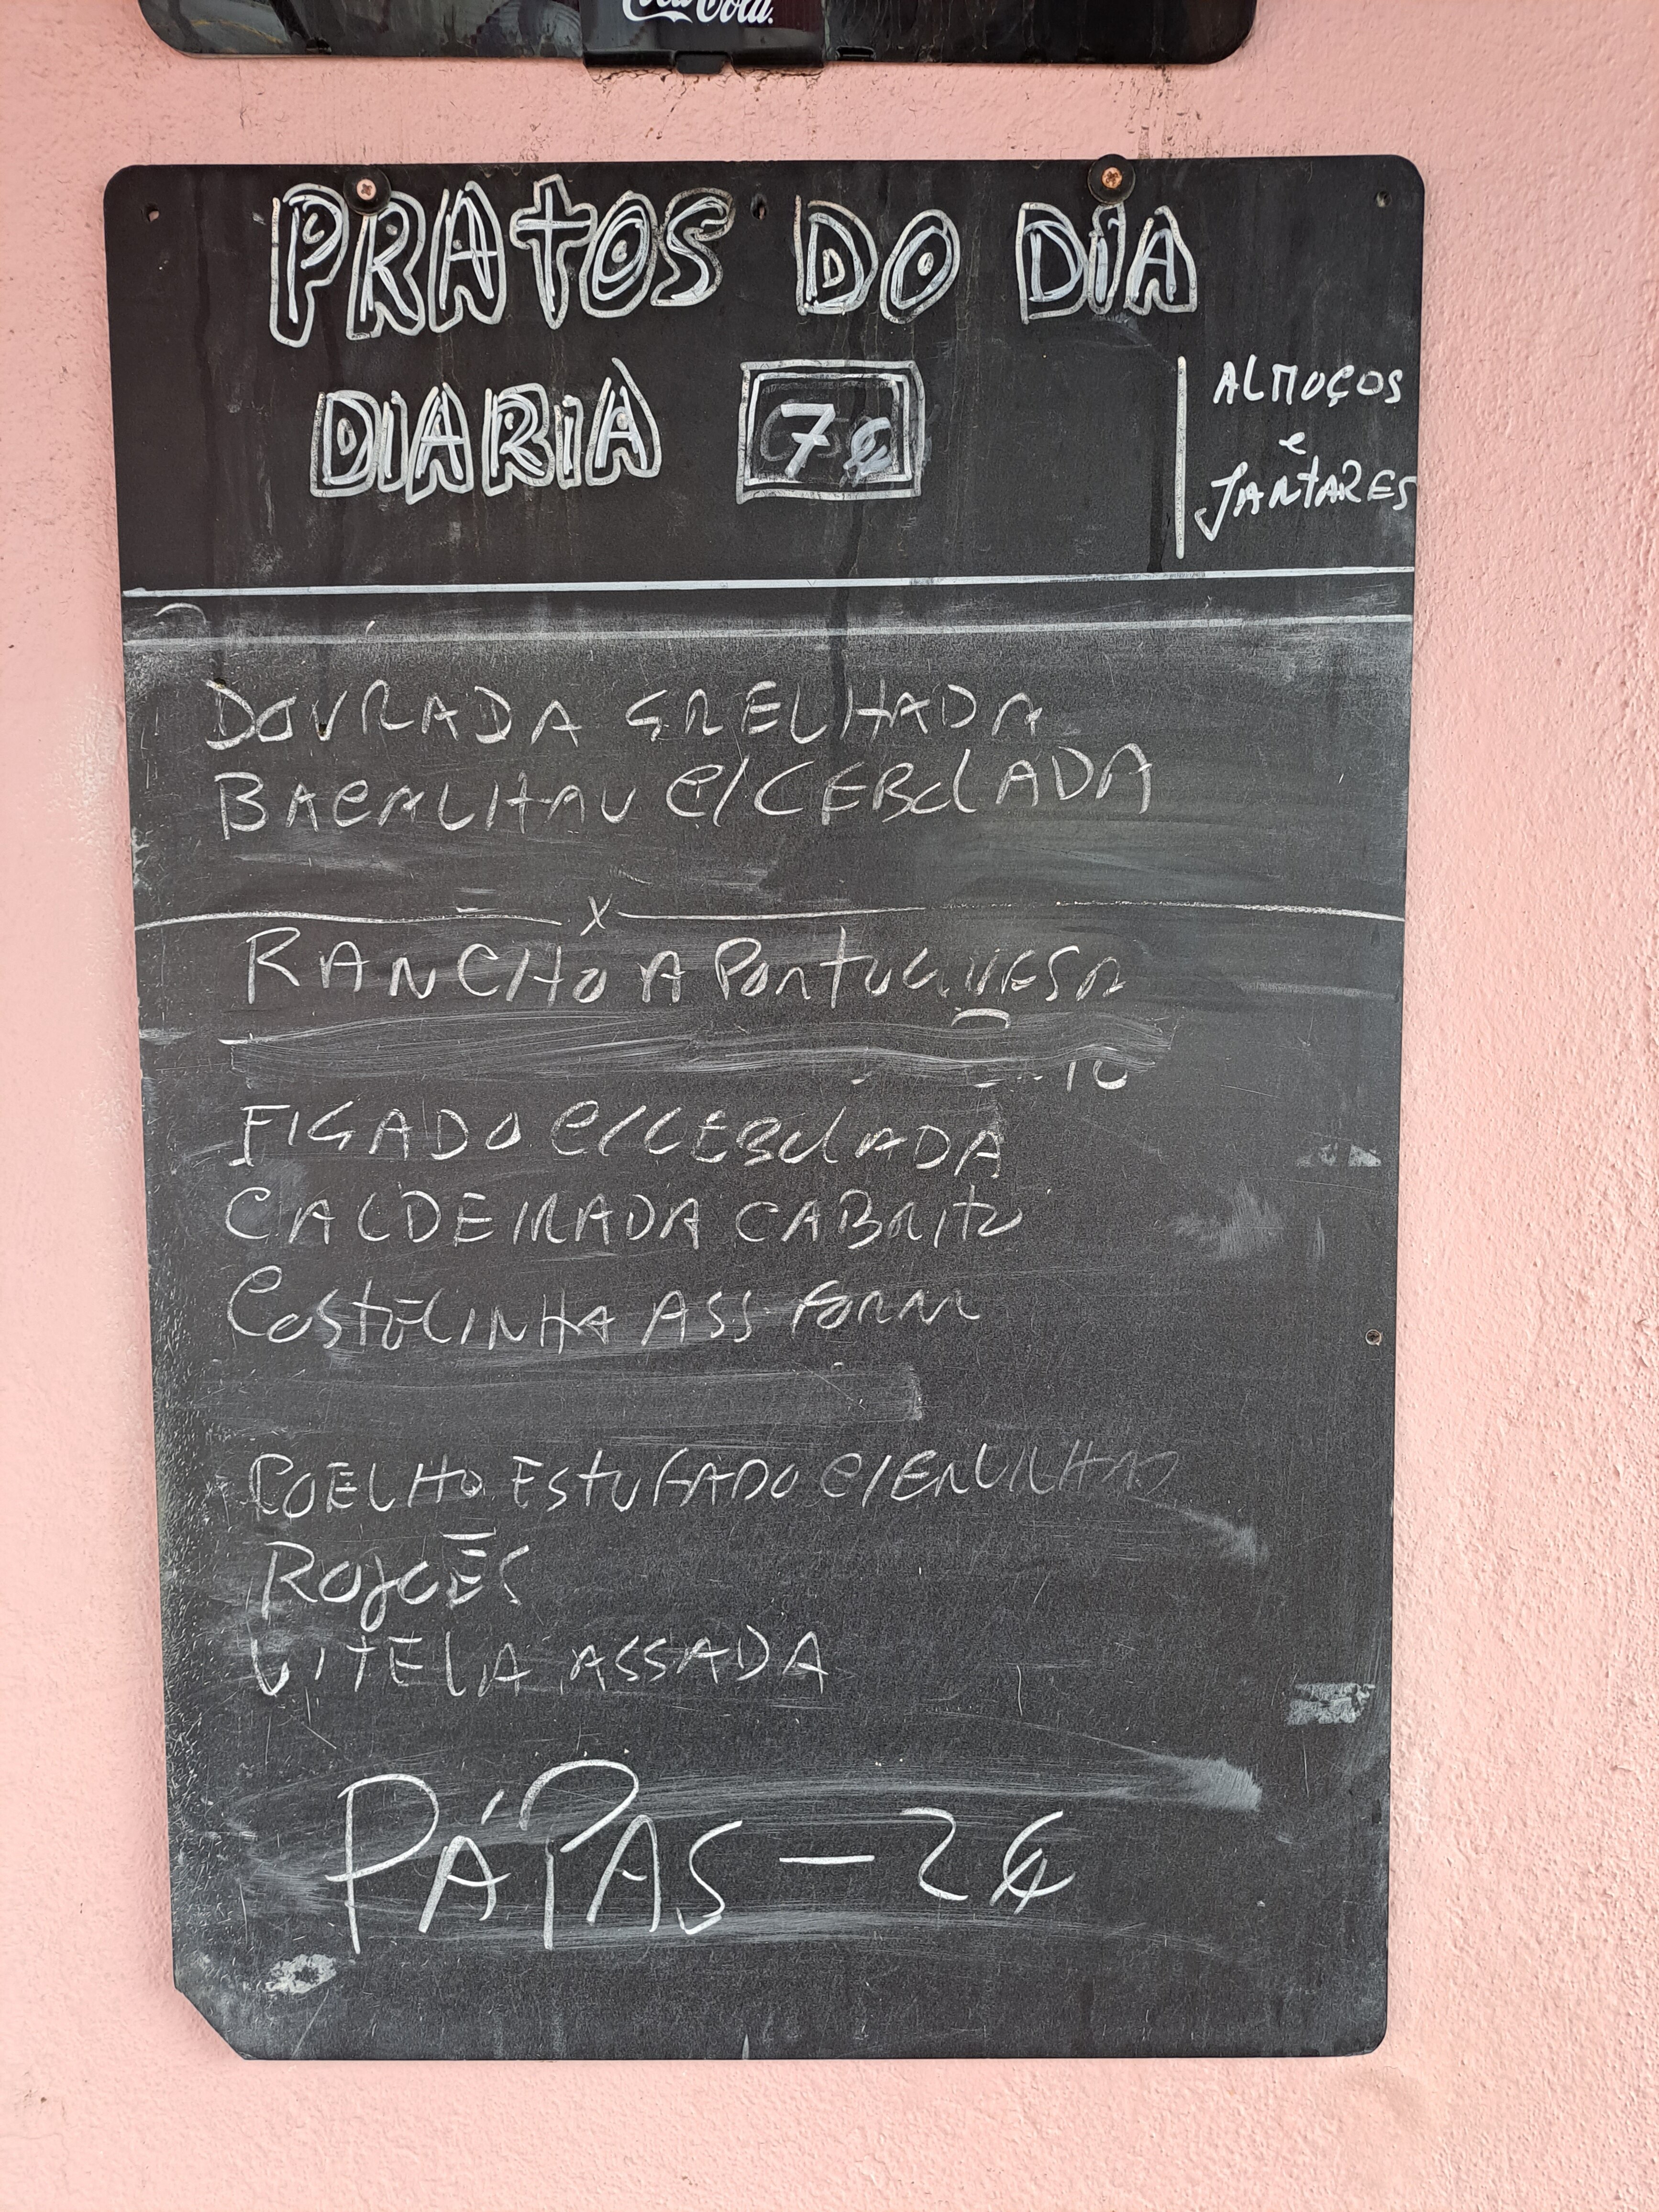 Coca-Cola.
PRATOS DO DIA
DIARIA 7€
ALMOÇOS
e
JANTARES
DOURADA GRELHADA
BACALHAU C/CEBOLADA
x
RANCHO A PORTUGUESA
FIGADO C/CEBOLADA
CALDEIRADA CABRITO
COSTELINHA ASS FORNO
COELHO ESTUFADO C/ERVILHAS
ROJOES
VITELA ASSADA
PÁPAS - 2€